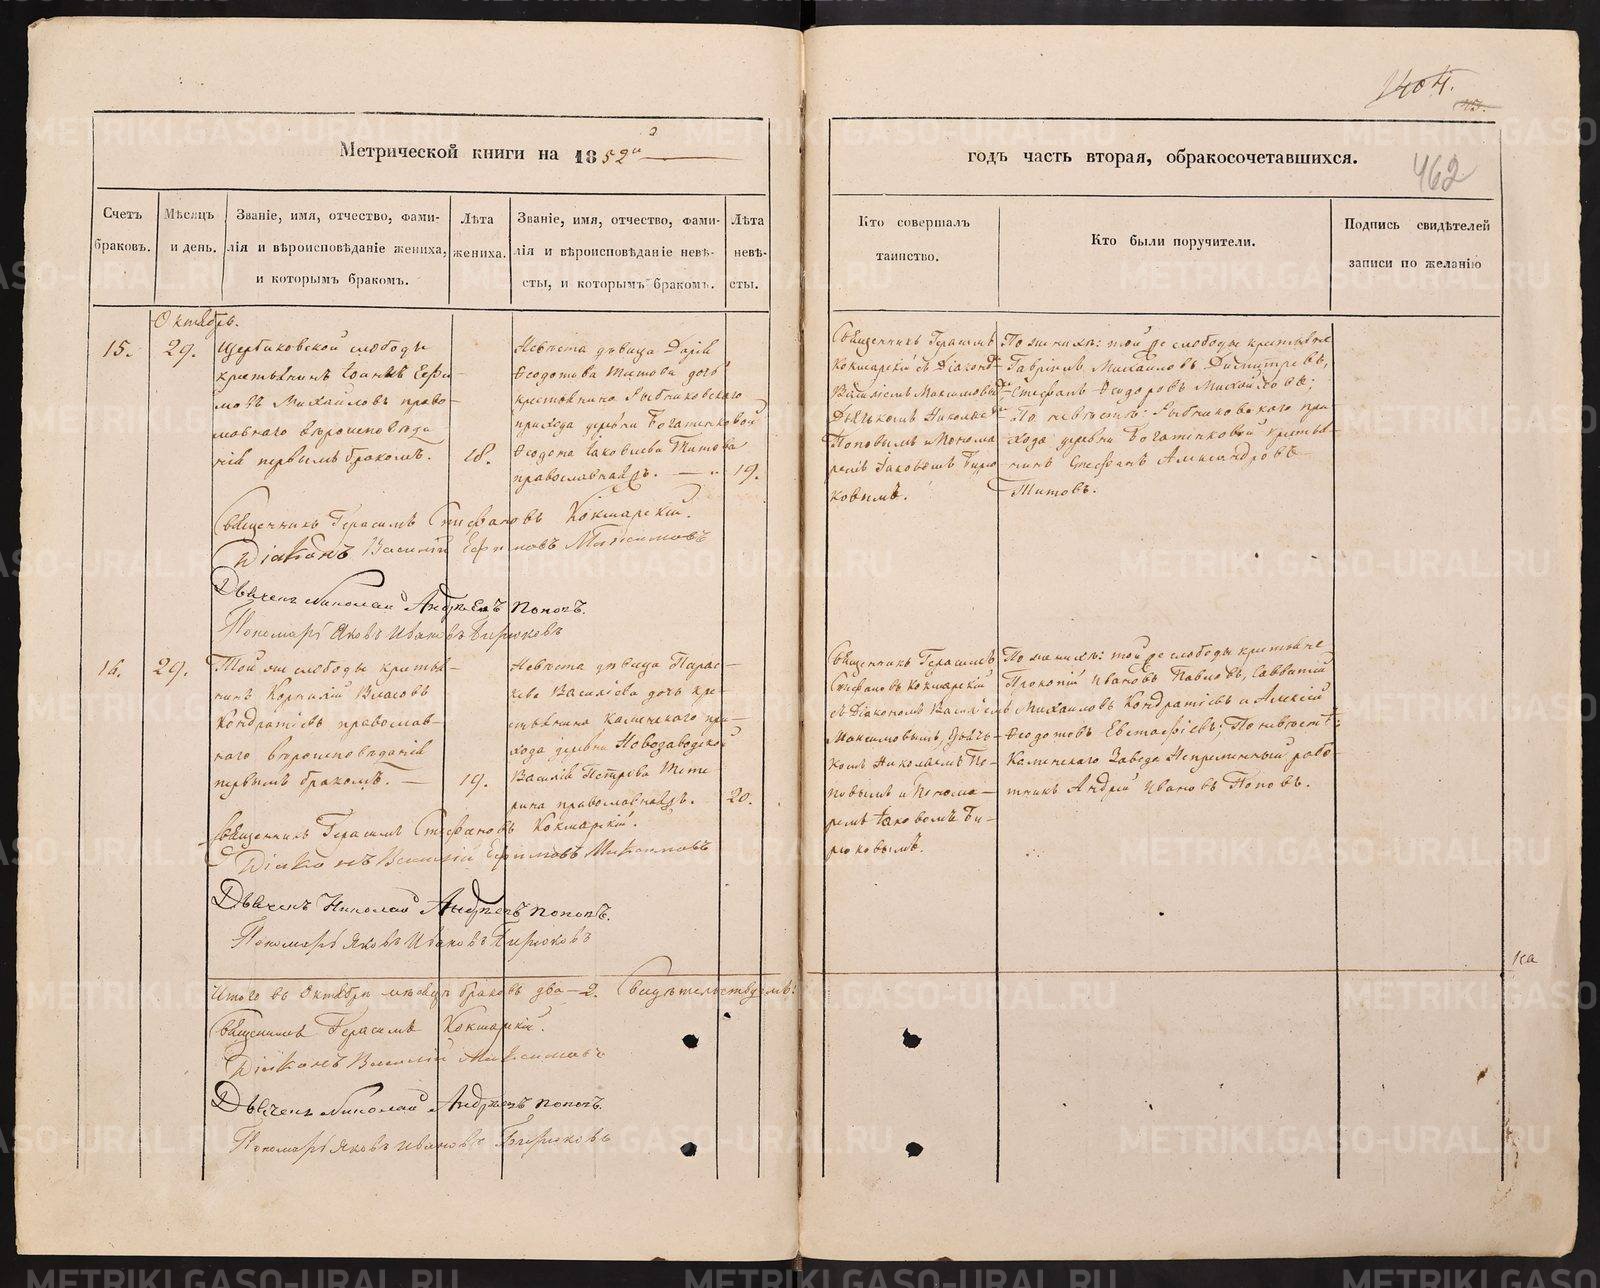 1404.
462
Метрической книги на 1852й
годъ часть вторая, обракосочетавшихся.
Счетъ браковъ.
Мѣсяцъ и день.
Званіе, имя, отчество, фами-
лія и вѣроисповѣданіе жениха,
и которымъ бракомъ.
Лѣта
жениха.
Званіе, имя, отчество, фами-
лія и вѣроисповѣданіе невѣ-
сты, и которымъ бракомъ.
Лѣта
невѣ-
сты.
Кто совершалъ
таинство.
Кто были поручители.
Подпись свидѣтелей
записи по желанію
Октябрь.
15.
29.
Щербаковской слободы
крестьянинъ Іоаннъ Ефи-
мовъ Михайловъ право-
славнаго вѣроисповѣда-
нія первымъ бракомъ.
18.
Невѣста дѣвица Дарія
Ѳеодотова Титова дочь
крестьянина Рыбниковскаго
прихода деревни Богатенковой
Ѳеодота Іаковлева Титова
православнаго.
19.
Священникъ Герасимъ
Кокшарскій съ Діакономъ
Василіемъ Максимовымъ
Дьячкомъ Николаемъ
Поповымъ и Понома-
ремъ Іаковомъ Бирю-
ковымъ.
По женихѣ: той же слободы крестьяне
Гавріилъ Михайловъ Димитріевъ,
Стефанъ Ѳеодоровъ Михайловъ;
По невѣстѣ: Рыбниковскаго при-
хода деревни Богатенковой крестья-
нинъ Стефанъ Александровъ
Титовъ.
Священникъ Герасимъ Стефановъ Кокшарскій.
Діаконъ Василій Ефимовъ Максимовъ
Дьячекъ Николай Андреевъ Поповъ.
Пономарь Яковъ Ивановъ Бирюковъ
16.
29.
Той же слободы крестья-
нинъ Корнилій Власовъ
Кондратьевъ православ-
наго вѣроисповѣданія
первымъ бракомъ.
19.
Невѣста дѣвица Парас-
кева Василіева дочь кре-
стьянина Каменскаго при-
хода деревни Новозаводской
Василія Петрова Тете-
рина православнаго.
20.
Священникъ Герасимъ
Стефановъ Кокшарскій
съ Діакономъ Василіемъ
Максимовымъ, Дьяч-
комъ Николаемъ По-
повымъ и Понома-
ремъ Іаковомъ Би-
рюковымъ.
По женихѣ: той же слободы крестьяне
Прокопій Ивановъ Павловъ, Савватій
Михайловъ Кондратьевъ и Алексій
Ѳеодотовъ Евстафіевъ; По невѣстѣ:
Каменскаго Завода Непременный рабо-
тникъ Андрей Ивановъ Поповъ.
Священникъ Герасимъ Стефановъ Кокшарскій.
Діаконъ Василій Ефимовъ Максимовъ
Дьячекъ Николай Андреевъ Поповъ.
Пономарь Яковъ Ивановъ Бирюковъ
Итого въ Октябрѣ мѣсяцѣ браковъ два—2. Свидѣтельствуемъ:
Священникъ Герасимъ Кокшарскій.
Діаконъ Василій Максимовъ
Дьячекъ Николай Андреевъ Поповъ.
Пономарь Яковъ Ивановъ Бирюковъ
ка
METRIKI.GASO-URAL.RU